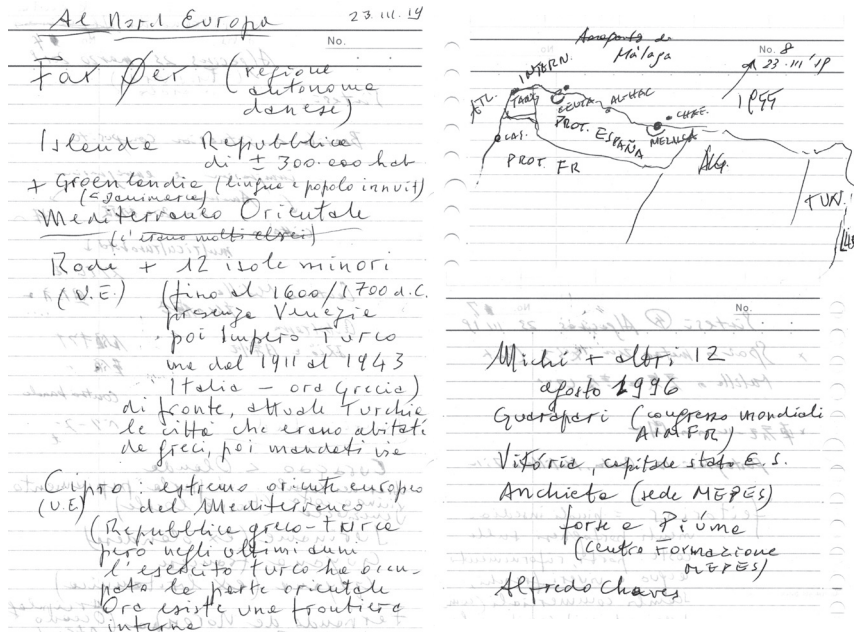 Al Nord Europa
23.III.19
No.
Får Øer (regione
autonoma
danese)
Islanda Repubblica
di ± 300.000 hab
+ Groenlandia (lingua e popolo innuit)
Mediterraneo Orientale
(c'erano molti ebrei)
Rodi + 12 isole minori
(U.E.) (fino al 1600/1700 d.C.
presenza Venezia
poi Impero Turco
ma dal 1911 al 1943
Italia – ora Grecia)
di fronte, attuale Turchia
le città che erano abitate
da greci, poi mandati via
Cipro: estremo oriente europeo
(U.E) del Mediterraneo
(Repubblica greco-turca
però negli ultimi anni
l'esercito turco ha occu-
pato la parte orientale
Ora esiste una frontiera
interna
Aeroporto de
Málaga
No. 8
23.III'19
INTERN.
ATL.
TANG.
CEUTA
ALHUC
CHAF.
1944
CAS.
PROT. ESPAÑA
MELILLA
PROT. FR
ALG.
TUN.
No.
Michi + altri 12
agosto 1996
Guarapari (congresso mondiali
AIMFR)
Vitória, capitale stato E.S.
Anchieta (sede MEPES)
forse a Piúma
(Centro Formazione
MEPES)
Alfredo Chaves